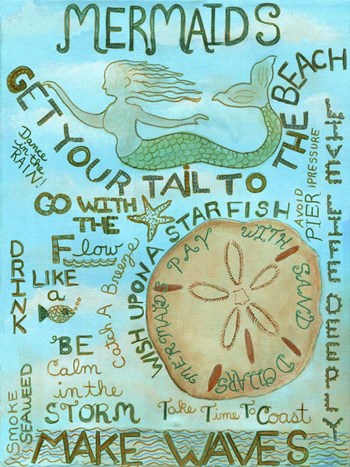 MERMAIDS
GET YOUR TAIL TO THE BEACH
Dance in the RAIN!
AVOID PIER PRESSURE
GO WITH THE Flow
WISH UPON A STARFISH
Catch A Breeze
DRINK LIKE a
MERMAIDS PAY WITH SAND DOLLARS
BE Calm in the STORM
SMOKE SEAWEED
Take Time To Coast
MAKE WAVES